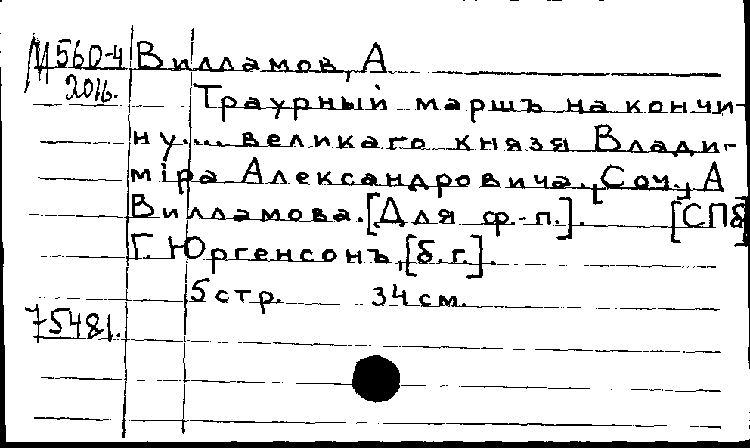 М560-4 Вилламов, А
2016.
Траурный маршъ на кончи-
ну... великаго князя Влади-
міра Александровича. [Соч., А
Вилламова. [Для ф.-п.]. [СПб]
Г. Юргенсонъ, [б. г.].
5 стр. 34 см.
75481.